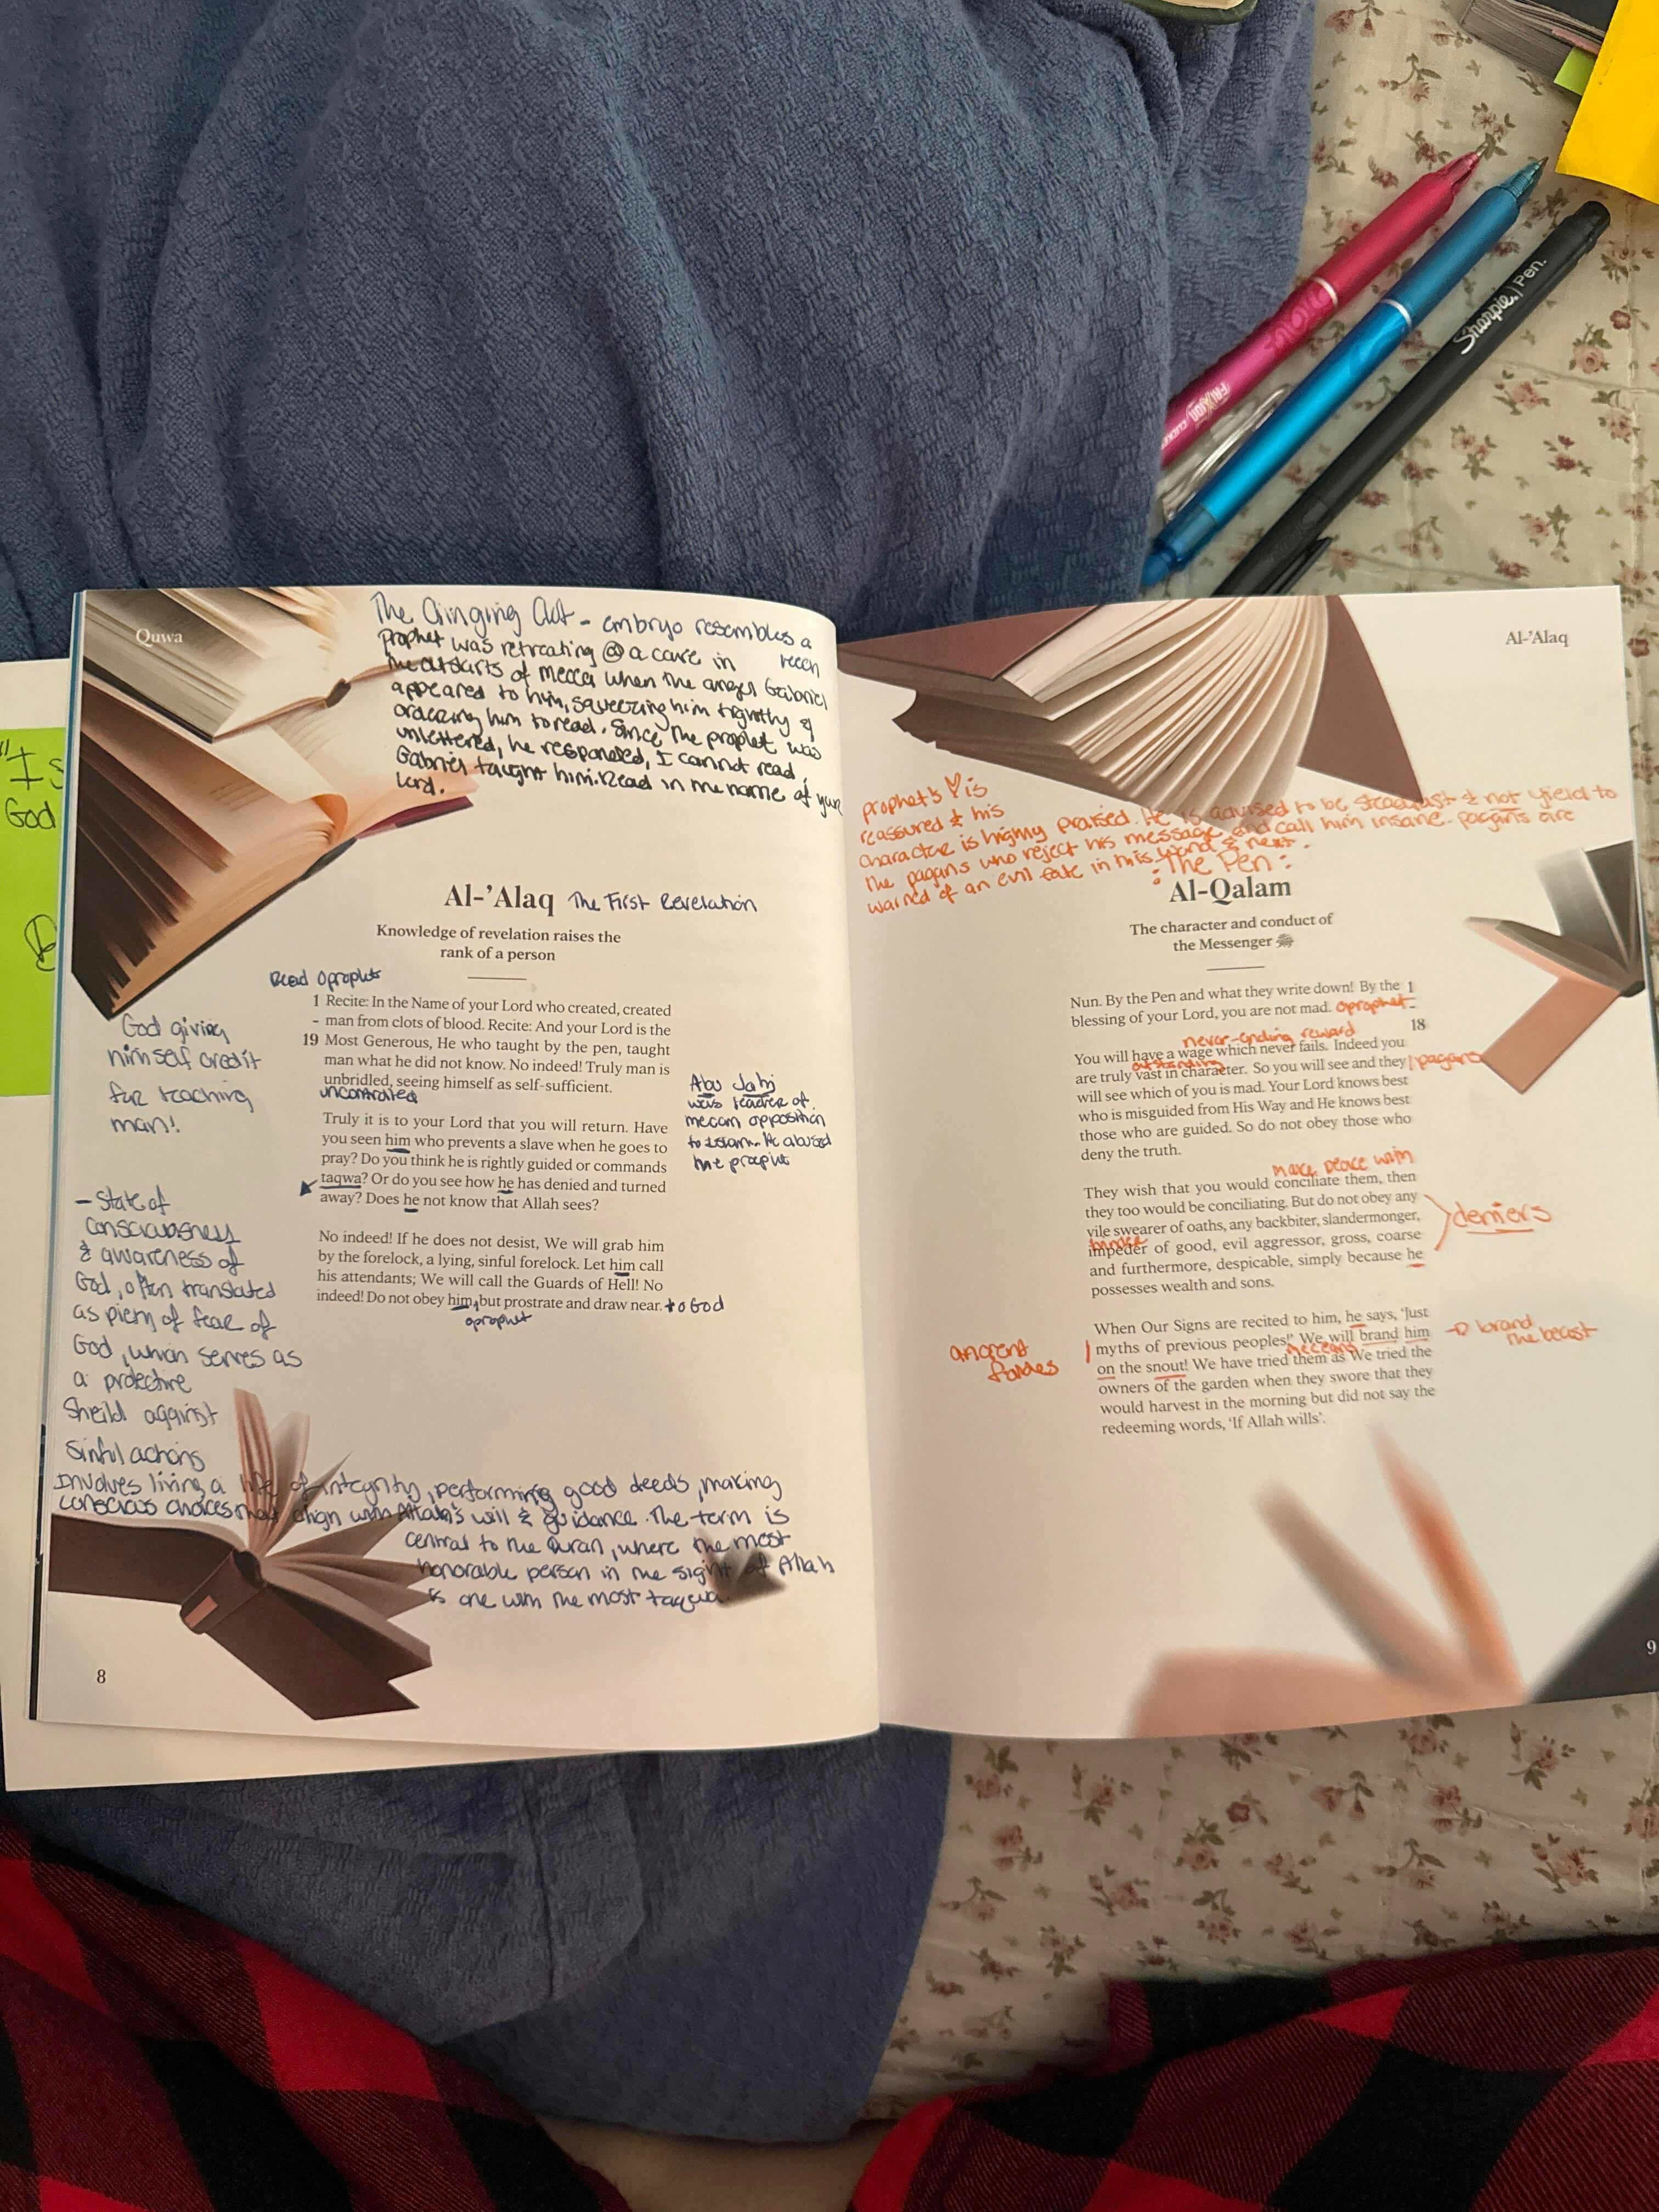 Sharpie. Pen.
FRIXION CLICKER
"I s
God
Quwa
The Clinging Clot - embryo resembles a
leech
Prophet was retreating @ a cave in
the outskirts of mecca when the angel Gabriel
appeared to him, squeezing him tightly &
ordering him to read. Since the prophet was
unlettered, he responded, I cannot read,
Gabriel taught him: Read in the name of your
Lord.
Al-'Alaq The First Revelation
Knowledge of revelation raises the
rank of a person
Read O prophet
1 Recite: In the Name of your Lord who created, created
- man from clots of blood. Recite: And your Lord is the
19 Most Generous, He who taught by the pen, taught
man what he did not know. No indeed! Truly man is
unbridled, seeing himself as self-sufficient.
uncontrolled
God giving
himself credit
for teaching
man!
Abu Jahl
was leader of
meccan opposition
to Islam. He abused
the prophet
Truly it is to your Lord that you will return. Have
you seen him who prevents a slave when he goes to
pray? Do you think he is rightly guided or commands
taqwa? Or do you see how he has denied and turned
away? Does he not know that Allah sees?
No indeed! If he does not desist, We will grab him
by the forelock, a lying, sinful forelock. Let him call
his attendants; We will call the Guards of Hell! No
indeed! Do not obey him, but prostrate and draw near. to God
O prophet
- State of
consciousness
& awareness of
God, often translated
as piety of fear of
God, which serves as
a protective
Sheild against
Sinful actions
Involves living a life of integrity, performing good deeds, making
conscious choices that align with Allah's will & guidance. The term is
central to the Quran, where the most
honorable person in the sight of Allah
is one with the most taqwa
8
Al-'Alaq
prophet's ♡ is
reassured & his
character is highly praised. He is advised to be steadfast & not yield to
the pagans who reject his message and call him insane. pagans are
warned of an evil fate in this world & next.
: The Pen :
Al-Qalam
The character and conduct of
the Messenger ﷺ
Nun. By the Pen and what they write down! By the 1
blessing of your Lord, you are not mad. O prophet -
18
never-ending reward
You will have a wage which never fails. Indeed you
outstanding
are truly vast in character. So you will see and they pagans
will see which of you is mad. Your Lord knows best
who is misguided from His Way and He knows best
those who are guided. So do not obey those who
deny the truth.
make peace with
They wish that you would conciliate them, then
they too would be conciliating. But do not obey any
vile swearer of oaths, any backbiter, slandermonger,
impeder of good, evil aggressor, gross, coarse
and furthermore, despicable, simply because he
possesses wealth and sons.
deniers
When Our Signs are recited to him, he says, 'Just
myths of previous peoples!' We will brand him
meccans
on the snout! We have tried them as We tried the
owners of the garden when they swore that they
would harvest in the morning but did not say the
redeeming words, 'If Allah wills'.
ancient
fables
brand
the beast
9